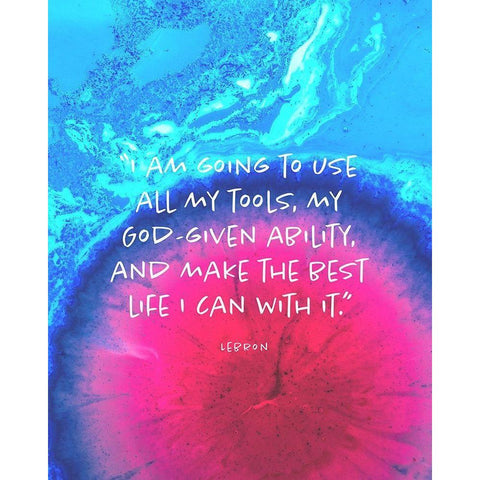 “I AM GOING TO USE
ALL MY TOOLS, MY
GOD-GIVEN ABILITY,
AND MAKE THE BEST
LIFE I CAN WITH IT.”
LEBRON